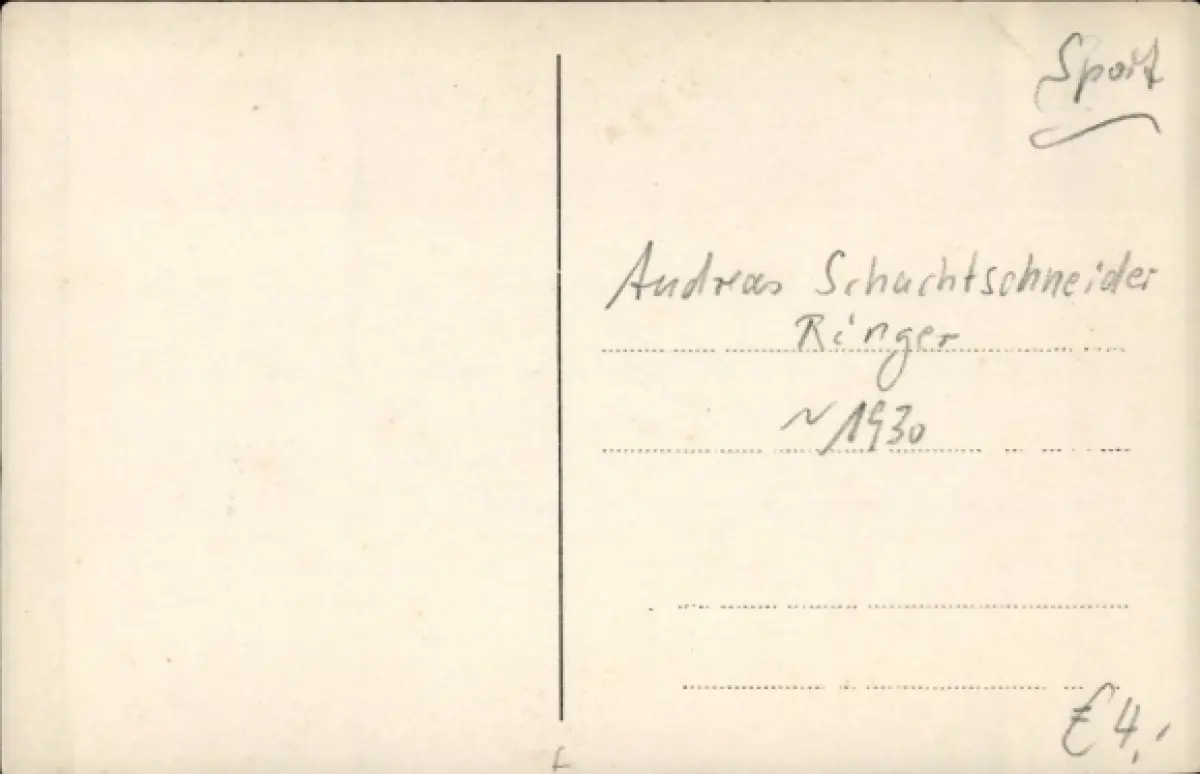 Sport
Andreas Schachtschneider
Ringer
~1930
€4,-